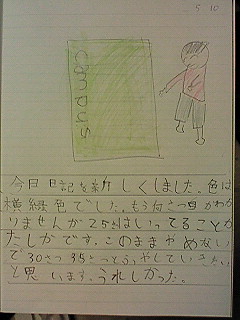 5 10
campus
今日日記を新しくしました。色は
横緑色でした。もう何さつ目かわか
りませんが25さつはいってることが
たしかです。このままやめない
で30さつ35さつとふやしていきたい
と思います。うれしかった。